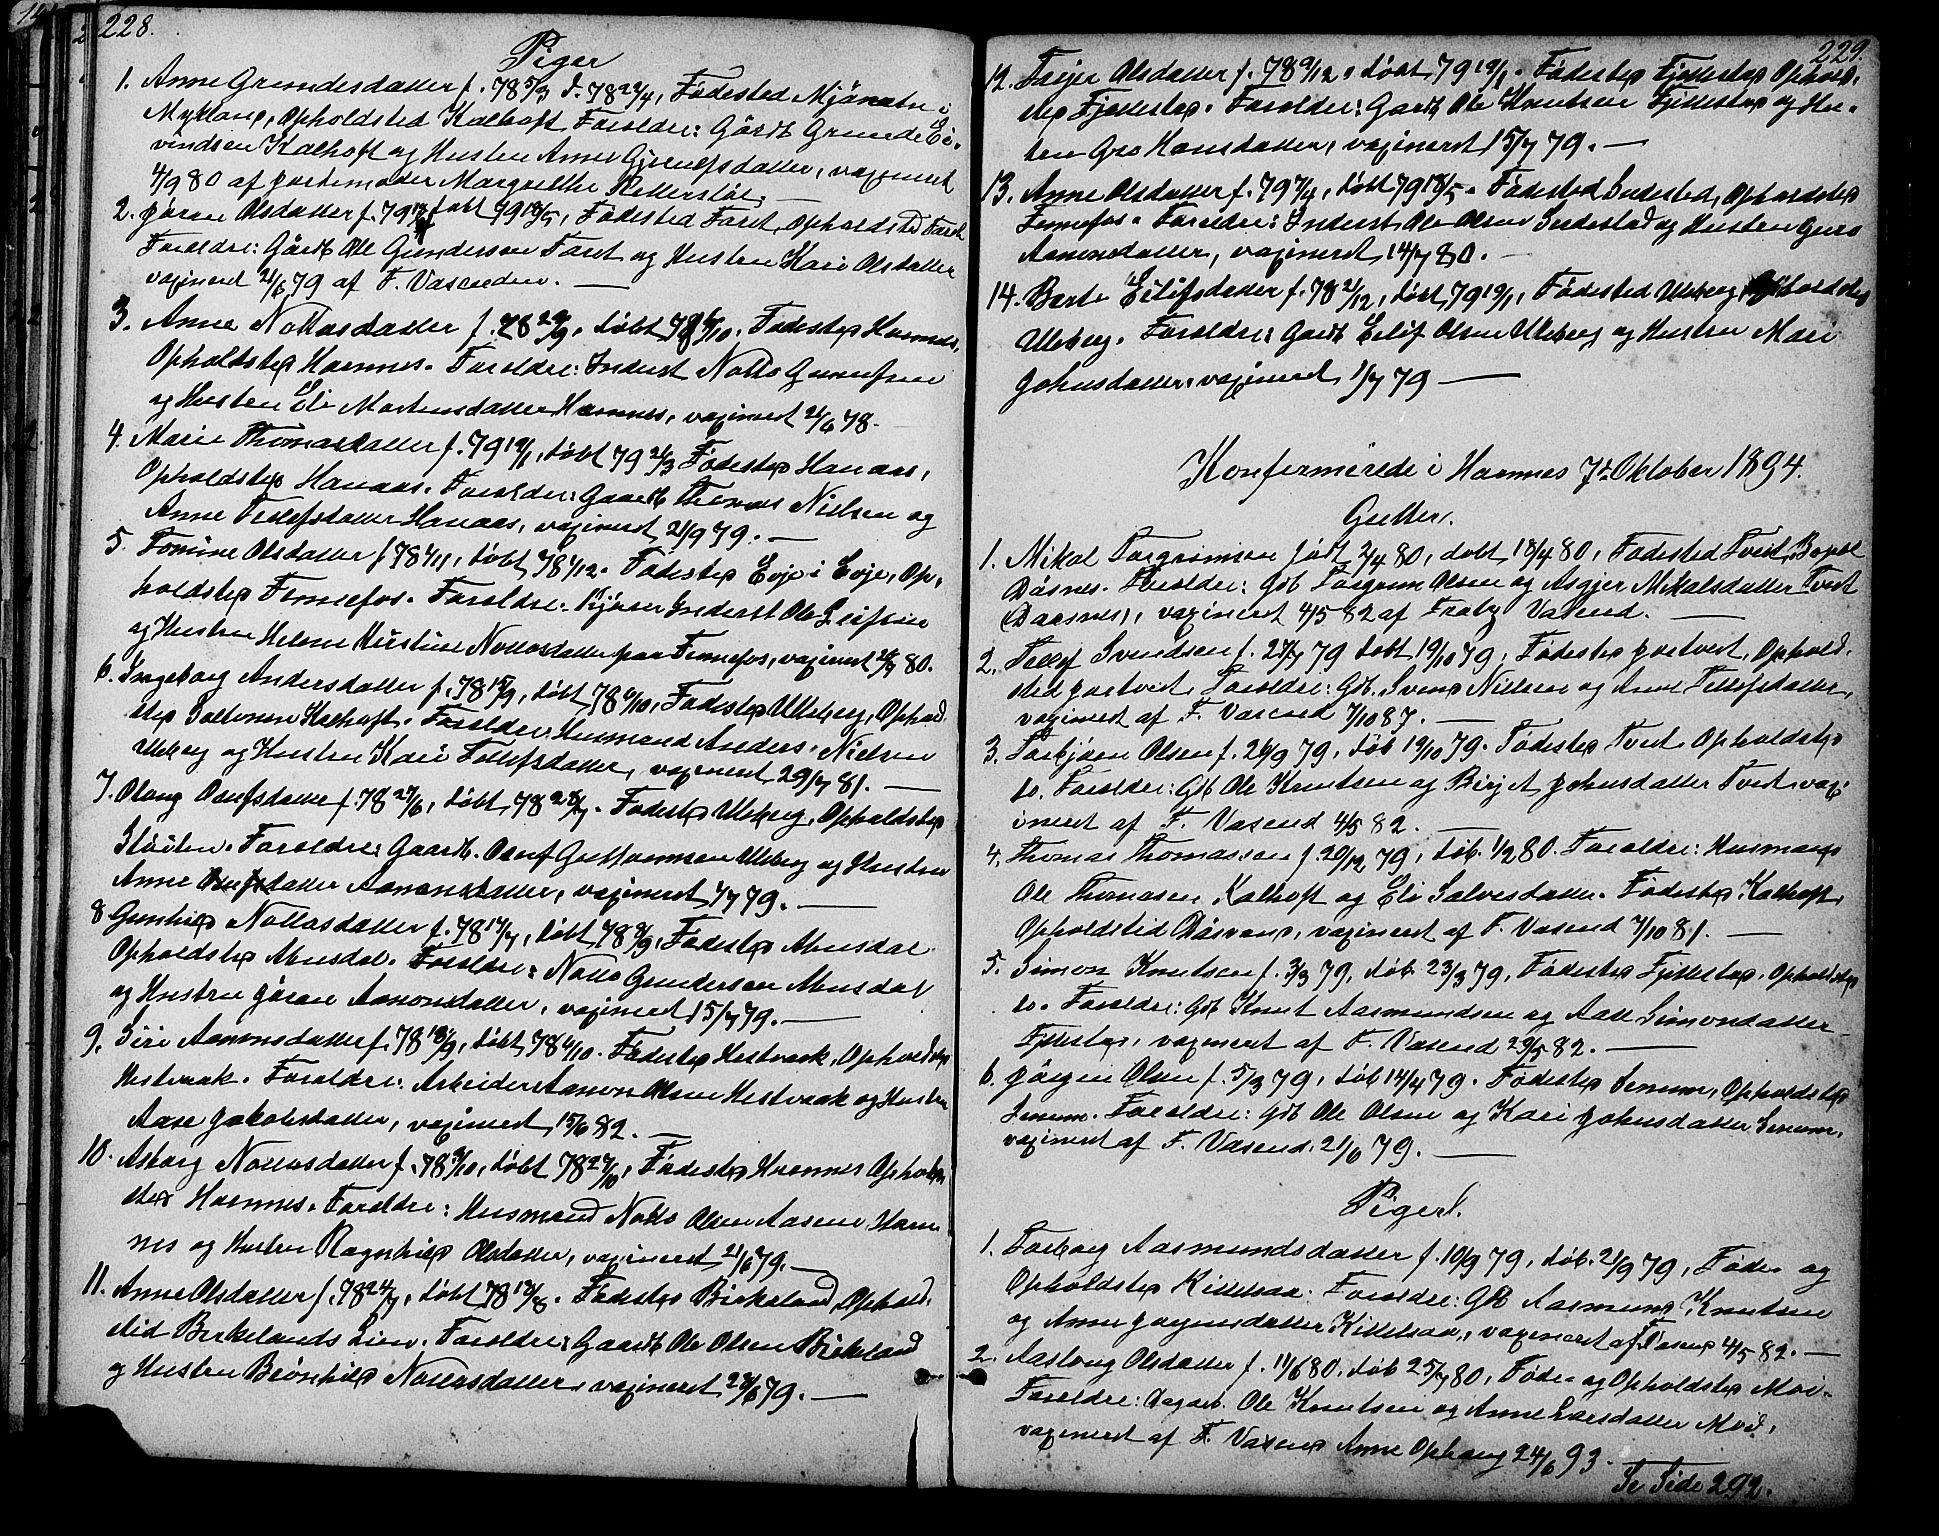 228.
Piger
1. Anne Grundesdatter f. 78 5/3 d. 78 22/4, Fødested i
Mykland, Opholdsted Kalhoft Foreldre: Gårdb Grunde Ei-
vindsen Kalhoft og Hustru Anne datter, vaxineret
4/9 80 af jordemoder Margrethe
2. Jøran Olsdatter f. 79 døbt 79 18/5, Fødested Faret, Opholdsted Faret
Foreldre: Gårdb Ole Gundersen Faret og Hustru Kari Olsdatter
vaxineret 21/6 79 af F. Vasenden.
3. Anne Nottosdatter f. 78 29/9, døbt 78 6/10. Fødested Hornnes,
Opholdsted Hornnes. Foreldre: Inderst Notto
og Hustru Eli Mortensdatter Hornnes, vaxineret 21/6 78.
4. Marie Thomasdatter f. 79 19/1, døbt 79 26/3 Fødested Hanaas,
Opholdsted Hanaas. Foreldre: Gaardb Thomas Nielsen og
Anne Tellefsdatter Hanaas, vaxineret 21/9 79.
5. Tomine Olsdatter f 78 4/11, døbt 78 1/12. Fødested Evje i Evje, Op-
holdsted Fennefos. Foreldre: Inderst Ole Leifsen
og Hustru Helene Kristine Nottosdatter paa Fennefos, vaxineret 80.
6. Ingeborg Andersdatter f. 78 15/9, døbt 78 6/10, Fødested Uleberg, Ophold-
sted Kalhoft. Foreldre: Husmand Anders Nielsen
Uleberg og Hustru Kari Tellefsdatter, vaxineret 29/7 81.
7. Olaug Olufsdatter f. 78 27/6, døbt 78 28/7. Fødested Uleberg, Opholdsted
Støilen. Foreldre: Gaardb. Oluf Guttormsen Uleberg og Hustru
Anne Aanonsdatter, vaxineret 1/7 79.
8 Gunhild Nottosdatter f. 78 17/7, døbt 78 8/9, Fødested Abusdal
Opholdsted Abusdal. Foreldre: Notto Gundersen Abusdal
og Hustru Jøran Aanonsdatter, vaxineret 15/7 79.
9. Siri Aanonsdatter f. 78 18/9, døbt 78 6/10. Fødested Hestvaak, Opholdsted
Hestvaak. Foreldre: Arbeider Aanon Olsen Hestvaak og Hustru
Aase Jakobsdatter, vaxineret 15/6 82.
10. Asborg Nottosdatter f. 78 9/10, døbt 78 27/10, Fødested Hornnes Ophold-
sted Hornnes. Foreldre: Husmand Notto Olsen Aasene Horn-
nes og Hustru Ragnhild Olsdatter, vaxineret 21/6 79.
11. Anne Olsdatter f. 78 24/7, døbt 78 18/8. Fødested Birkeland, Ophold-
sted Birkelands Lien. Foreldre: Gaardb Ole Olsen Birkeland
og Hustru Brønhild Nottosdatter, vaxineret 28/6 79.
229.
12. Torjer Olsdatter f. 78 9/12, døbt 79 19/1. Fødested Fjellestad Ophold-
sted Fjellestad. Foreldre: Gaardb Ole Knutsen Fjellestad og Hu-
stru Gro Hansdatter, vaxineret 15/7 79.
13. Anne Olsdatter f. 79 7/4, døbt 79 18/5. Fødested Indestad, Opholdsted
Fennefos. Foreldre: Inderst Ole Olsen Indestad og Hustru Guro
Aanonsdatter, vaxineret 14/7 80.
14. Berte Eilifsdatter f. 78 2/12, døbt 79 19/1, Fødested Uleberg, Opholdsted
Uleberg. Foreldre: Gaardb Eilif Olsen Uleberg og Hustru Mari
Johnsdatter, vaxineret 1/7 79
Konfirmerede i Hornnes 7de Oktober 1894.
Gutter.
1. Mikal Torgrimsen født 2/4 80, døbt 18/4 80, Fødested Tveit, Bopæl
Dåsnes. Foreldre: Gdb Torgrim Olsen og Asgjer Mikalsdatter Tveit
(Daasnes), vaxineret 4/5 82 af Fratz Vasend.
2. Tellef Svendsen f. 27/7 79 døbt 19/10 79, Fødested Jortveit, Ophold-
sted Jortveit, Foreldre: Gdb. Svend Nielsen og Anne Tellefsdatter,
vaxineret af F. Vasend 7/10 87.
3. Torbjørn Olsen f. 26/9 79, døb 19/10 79. Fødested Tveit Opholdsted
do. Foreldre: Gdb Ole Knutsen og Birjit Johnsdatter Tveit, vax-
ineret af F. Vasend 4/5 82.
4. Thomas Thomassen f. 20/12 79, døb. 1/2 80. Foreldre: Husmand
Ole Thomasen Kalhoft og Eli Salvesdatter. Fødested Kalhoft,
Opholdstid Dåsvand, vaxineret af F. Vasend 7/10 81.
5. Simon Knutsen f. 3/3 79, døb. 23/3 79, Fødested Fjellestad, Opholdsted
do. Foreldre: Gdb Knut Aasmundsen og Aase Simonsdatter
Fjellestad, vaxineret af F. Vasend 29/5 82.
6. Jørgen Olsen f. 5/3 79, døb 14/4 79. Fødested Senum, Opholdsted
Senum. Foreldre: Gdb Ole Olsen og Kari Johnsdatter Senum,
vaxineret af F. Vasend. 21/6 79.
Piger.
1. Torborg Aasmundsdatter f. 10/9 79, døb. 21/9 79, Føde- og
Opholdsted Killesaa. Foreldre: Gb Aasmund Knutsen
og Anne Jørgensdatter Killesaa, vaxineret af F. Vasend 4/5 82.
2. Aaslaug Olsdatter f. 11/6 80. døb 25/7 80, Føde- og Opholdsted Moi.
Foreldre: Ole Knutsen og Anne Larsdatter Moi,
vaxineret af F. Vasend Anne Ophaug 24/6 93.
Se Side 292.